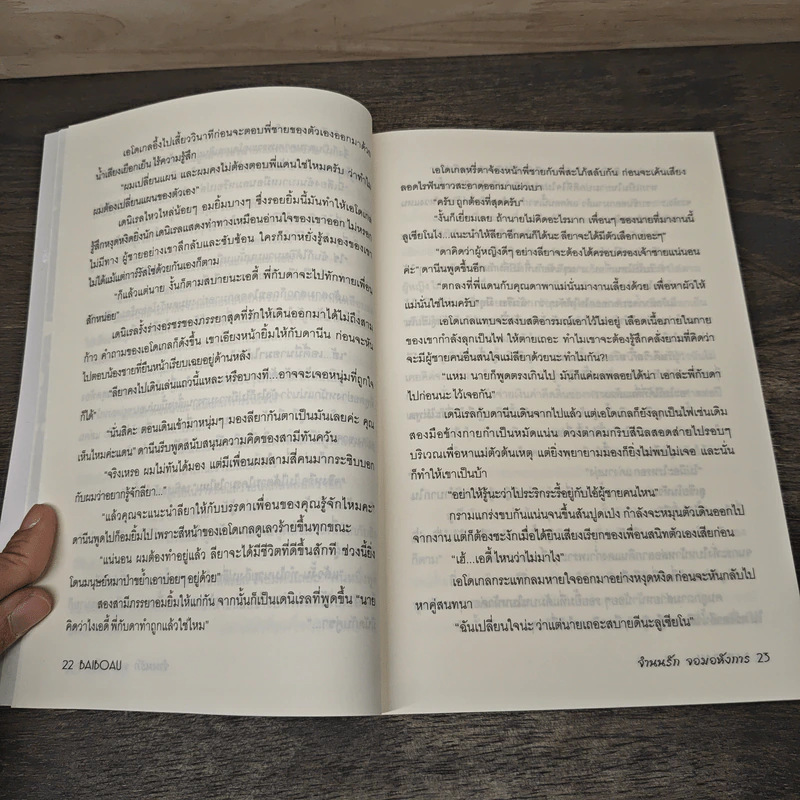 เอโดเกลอึ้งไปเสี้ยววินาทีก่อนจะตอบพี่ชายของตัวเองออกมาด้วย
น้ำเสียงเยือกเย็น ไร้ความรู้สึก
"ผมเปลี่ยนแผน และผมคงไม่ต้องตอบพี่แดนใช่ไหมครับ ว่าทำไม
ผมต้องเปลี่ยนแผนของตัวเอง"
เดนิเรลไหวไหล่น้อยๆ อมยิ้มบางๆ ซึ่งรอยยิ้มนี้มันทำให้เอโดเกล
รู้สึกหงุดหงิดยิ่งนัก เดนิเรลแสดงท่าทางเหมือนอ่านใจของเขาออก ไม่หรอก
ไม่มีทาง ผู้ชายอย่างเขาลึกลับและซับซ้อน ใครก็มาหยั่งรู้สมองของเขา
ไม่ได้แม้แต่การ์รัสโซ่ด้วยกันเองก็ตาม
"ก็แล้วแต่นาย งั้นก็ตามสบายนะเอดี้ พี่กับดาจะไปทักทายเพื่อน
สักหน่อย"
เดนิเรลรั้งร่างอรชรของภรรยาสุดที่รักให้เดินออกมาได้ไม่ถึงสาม
ก้าว คำถามของเอโดเกลก็ดังขึ้น เขาเอียงหน้ายิ้มให้กับดานีน ก่อนจะหัน
ไปตอบน้องชายที่ยืนหน้าเรียบเฉยอยู่ด้านหลัง
"ลียาคงไปเดินเล่นแถวนี้แหละ หรือบางที...อาจจะเจอหนุ่มที่ถูกใจ
ก็ได้"
"นั่นสิคะ ตอนเดินเข้ามาหนุ่มๆ มองลียากันตาเป็นมันเลยค่ะ คุณ
เห็นไหมค่ะแดน" ดานีนรีบพูดสนับสนุนความคิดของสามีทันควัน
"จริงเหรอ ผมไม่ทันได้มอง แต่มีเพื่อนผมสามสี่คนมากระซิบบอก
กับผมว่าอยากรู้จักลียา..."
"แล้วคุณจะแนะนำลียาให้กับบรรดาเพื่อนของคุณรู้จักไหมคะ"
ดานีนพูดไปก็อมยิ้มไป เพราะสีหน้าของเอโดเกลดูเลวร้ายขึ้นทุกขณะ
"แน่นอน ผมต้องทำอยู่แล้ว ลียาจะได้มีชีวิตที่ดีขึ้นสักที ช่วงนี้ยิ่ง
โดนมนุษย์หมาป่าขย้ำเอาบ่อยๆ อยู่ด้วย"
สองสามีภรรยาอมยิ้มให้แก่กัน จากนั้นก็เป็นเดนิเรลที่พูดขึ้น "นาย
คิดว่าไงเอดี้ พี่กับดาทำถูกแล้วใช่ไหม"
22 BAIBOAU
เอโดเกลหรี่ตาจ้องหน้าพี่ชายกับพี่สะใภ้สลับกัน ก่อนจะเค้นเสียง
ลอดไรฟันขาวสะอาดออกมาแผ่วเบา
"ครับ ถูกต้องที่สุดครับ"
"งั้นก็เยี่ยมเลย ถ้านายไม่คิดอะไรมาก เพื่อนๆ ของนายที่มางานนี้
ลูเซียโนไง...แนะนำให้ลียาอีกคนก็ได้นะ ลียาจะได้มีตัวเลือกเยอะๆ"
"ดาคิดว่าผู้หญิงดีๆ อย่างลียาจะต้องได้ครอบครองเจ้าชายแน่นอน
ค่ะ" ดานีนพูดขึ้นอีก
"ตกลงที่พี่แดนกับคุณดาพาแม่นั่นมางานเลี้ยงด้วย เพื่อหาผัวให้
แม่นั่นใช่ไหมครับ"
เอโดเกลแทบจะสงบสติอารมณ์เอาไว้ไม่อยู่ เลือดเนื้อภายในกาย
ของเขากำลังลุกเป็นไฟ ให้ตายเถอะ ทำไมเขาจะต้องรู้สึกคลั่งยามที่คิดว่า
จะมีผู้ชายคนอื่นสนใจแม่ลียาด้วยนะ ทำไมกัน?!
"แหม นายก็พูดตรงเกินไป มันก็แค่ผลพลอยได้น่า เอาล่ะพี่กับดา
ไปก่อนนะ ไว้เจอกัน"
เดนิเรลกับดานีนเดินจากไปแล้ว แต่เอโดเกลก็ยังลุกเป็นไฟเช่นเดิม
สองมือข้างกายกำเป็นหมัดแน่น ดวงตาคมกริบสีนิลสอดส่ายไปรอบๆ
บริเวณเพื่อหาแม่ตัวต้นเหตุ แต่ยิ่งพยายามมองก็ยิ่งไม่พบไม่เจอ และนั่น
ก็ทำให้เขาเป็นบ้า
"อย่าให้รู้นะว่าไประริกระรี้อยู่กับไอ้ผู้ชายคนไหน"
กรามแกร่งขบกันแน่นจนขึ้นสันปูดเป่ง กำลังจะหมุนตัวเดินออกไป
จากงาน แต่ก็ต้องชะงักเมื่อได้ยินเสียงเรียกของเพื่อนสนิทตัวเองเสียก่อน
"เฮ้...เอดี้ ไหนว่าไม่มาไง"
เอโดเกลกระแทกลมหายใจออกมาอย่างหงุดหงิด ก่อนจะหันกลับไป
หาคู่สนทนา
"ฉันเปลี่ยนใจน่ะ ว่าแต่นายเถอะสบายดีนะลูเซียโน"
จำนนรัก จอมอหังการ 23